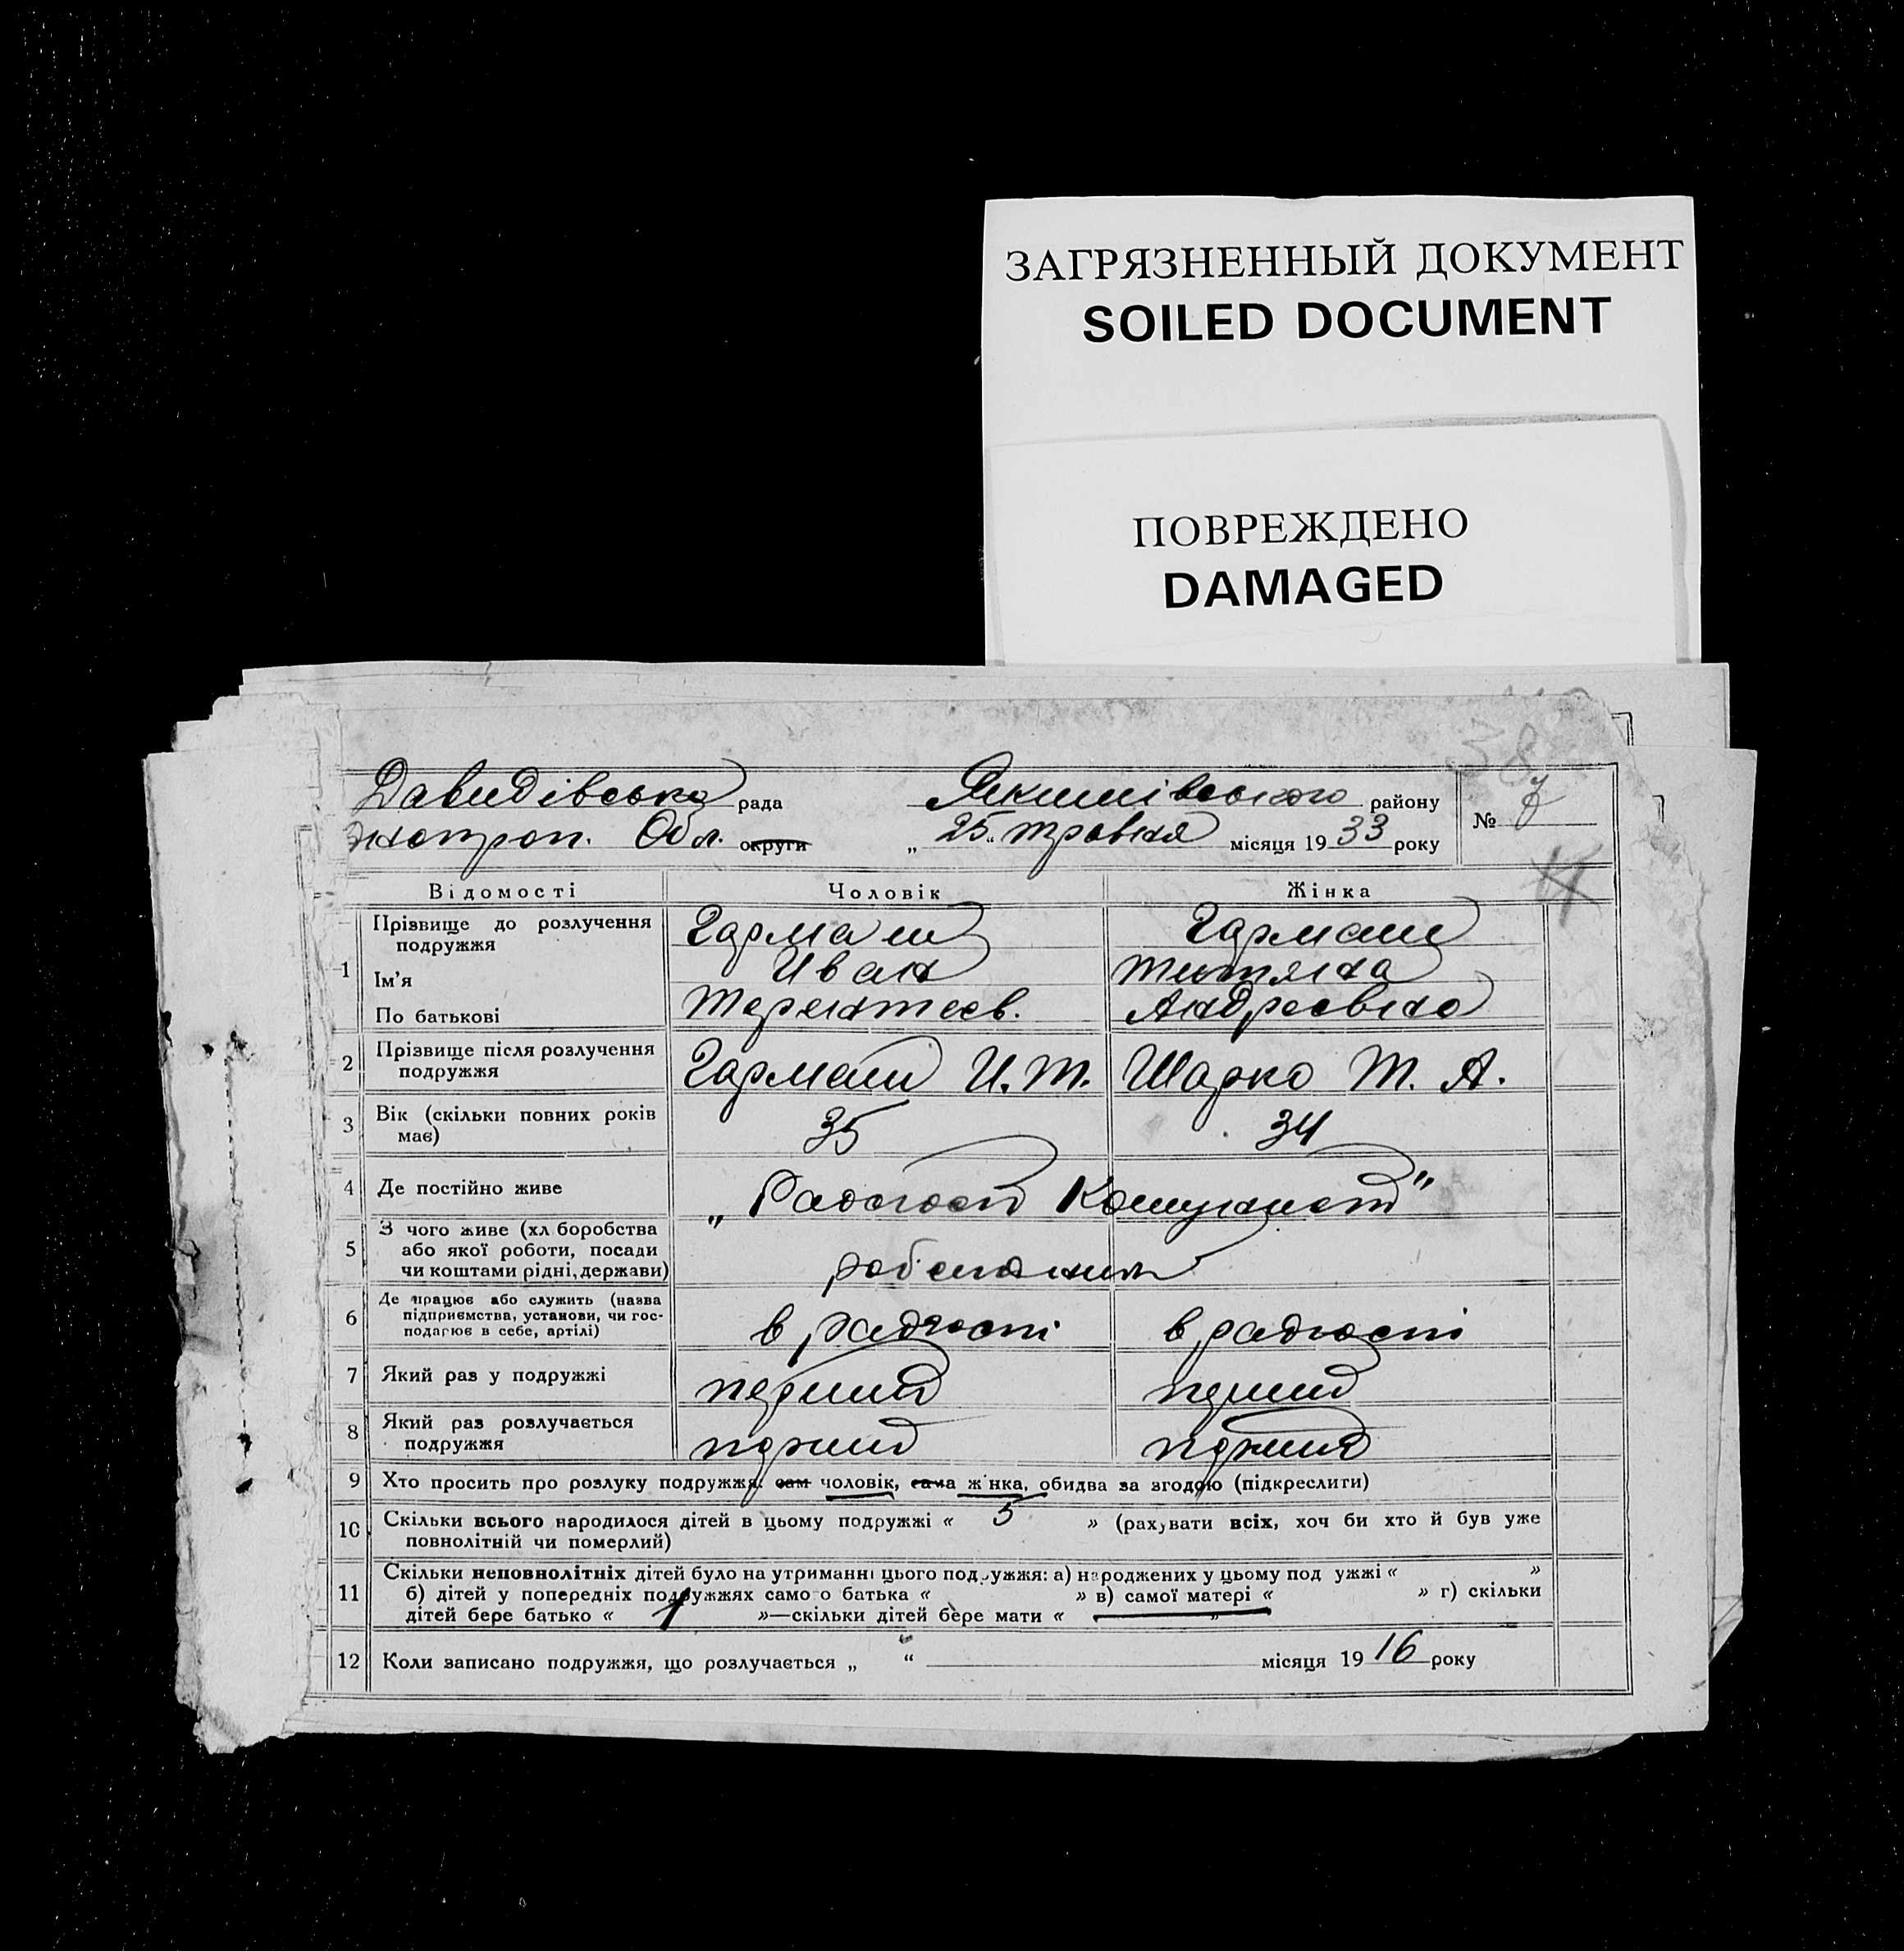 ЗАГРЯЗНЕННЫЙ ДОКУМЕНТ
SOILED DOCUMENT
ПОВРЕЖДЕНО
DAMAGED
38
Давидівська рада Якимівського району № 7
Обл. округи „25“ травня місяця 1933 року
Відомості Чоловік Жінка
1 Прізвище до розлучення подружжя Гармаш Гармаш
Ім'я Иван Титяна
По батькові Терентеев. Андреевна
2 Прізвище після розлучення подружжя Гармаш И. Т. Шарко Т. А.
3 Вік (скільки повних років має) 35 34
4 Де постійно живе „Радгосп Комунист"
5 З чого живе (хл боробства або якої роботи, посади чи коштами рідні, держави)
6 Де працює або служить (назва підприємства, установи, чи господарює в себе, артілі) в радгоспі в радгоспі
7 Який раз у подружжі перший перший
8 Який раз розлучається подружжя перший перший
9 Хто просить про розлуку подружжя: сам чоловік, сама ж нка, обидва за згодою (підкреслити)
10 Скільки всього народилося дітей в цьому подружжі « 5 » (рахувати всіх, хоч би хто й був уже
повнолітній чи померлий)
11 Скільки неповнолітніх дітей було на утриманні цього подружжя: а) народжених у цьому под ужжі « »
б) дітей у попередніх подружжях само о батька « » в) самої матері « » г) скільки
дітей бере батько « 1 »—скільки дітей бере мати « »
12 Коли записано подружжя, що розлучається „ “ місяця 1916 року